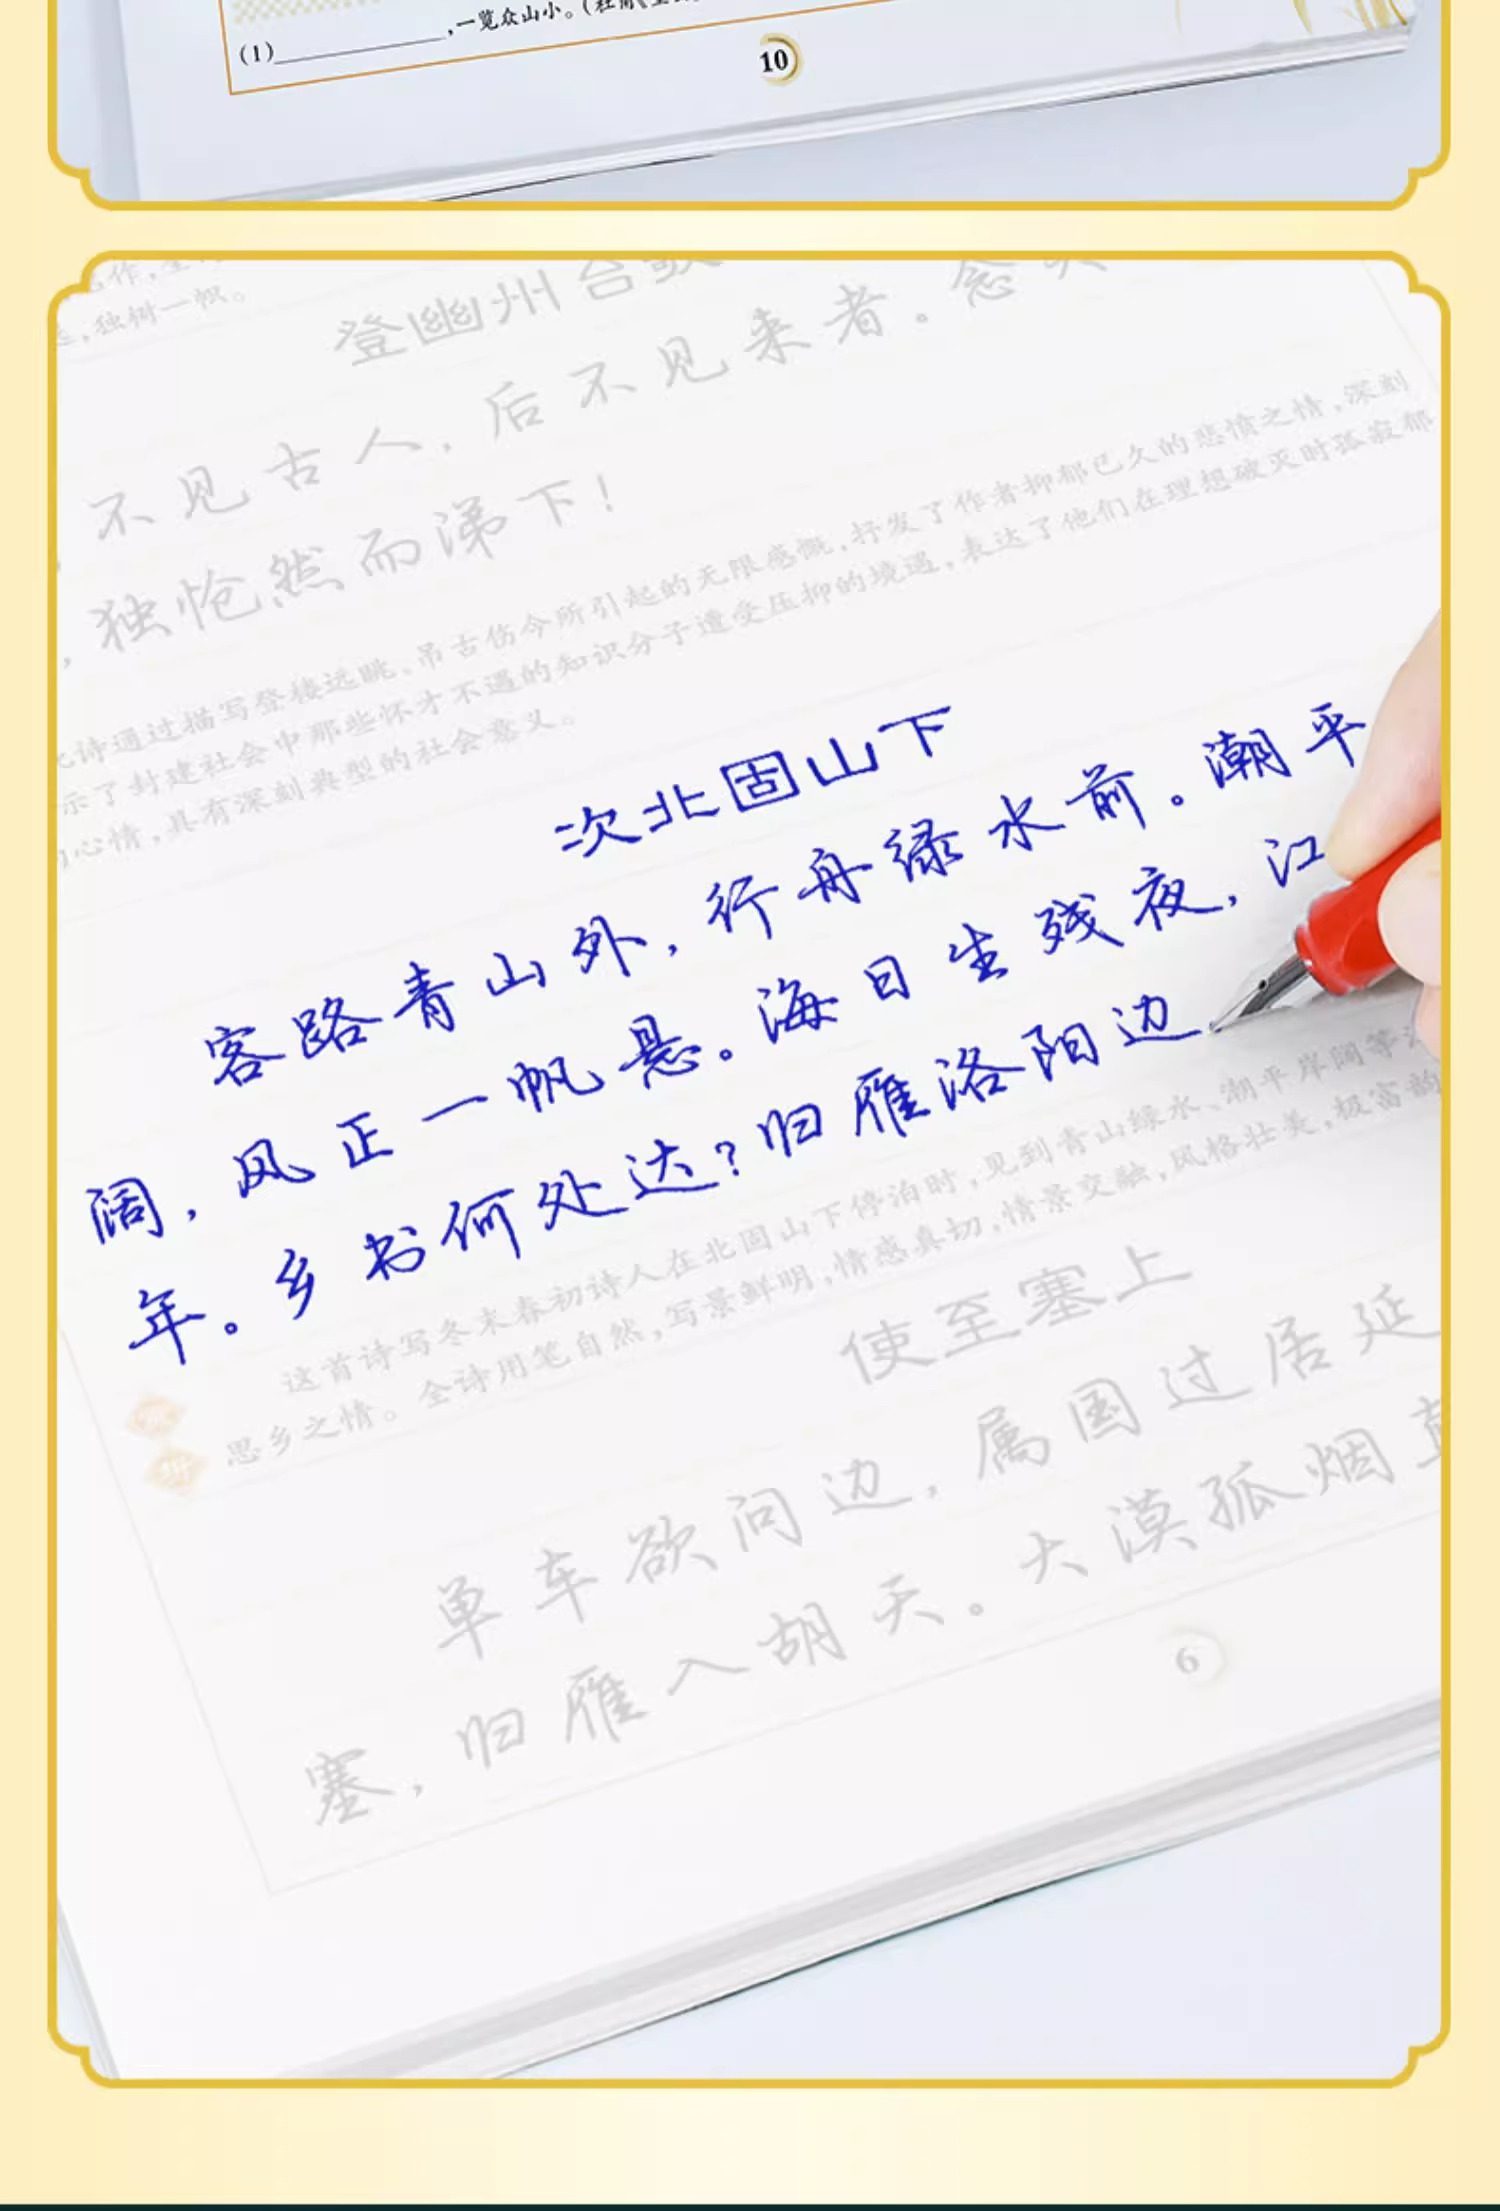 ,一览众山小。(杜甫《
(1)
10
作,
,独树一帜。
登幽州台歌
不见古人,后不见来者。念天
,独怆然而涕下!
此诗通过描写登楼远眺、吊古伤今所引起的无限感慨,抒发了作者抑郁已久的悲愤之情,深刻
示了封建社会中那些怀才不遇的知识分子遭受压抑的境遇,表达了他们在理想破灭时孤寂郁
的心情,具有深刻典型的社会意义。
次北固山下
客路青山外,行舟绿水前。潮平
阔,风正一帆悬。海日生残夜,江
年。乡书何处达?归雁洛阳边
这首诗写冬末春初诗人在北固山下停泊时,见到青山绿水、潮平岸阔等
思乡之情。全诗用笔自然,写景鲜明,情感真切,情景交融,风格壮美,极富韵
使至塞上
单车欲问边,属国过居延
塞,归雁入胡天。大漠孤烟直
6